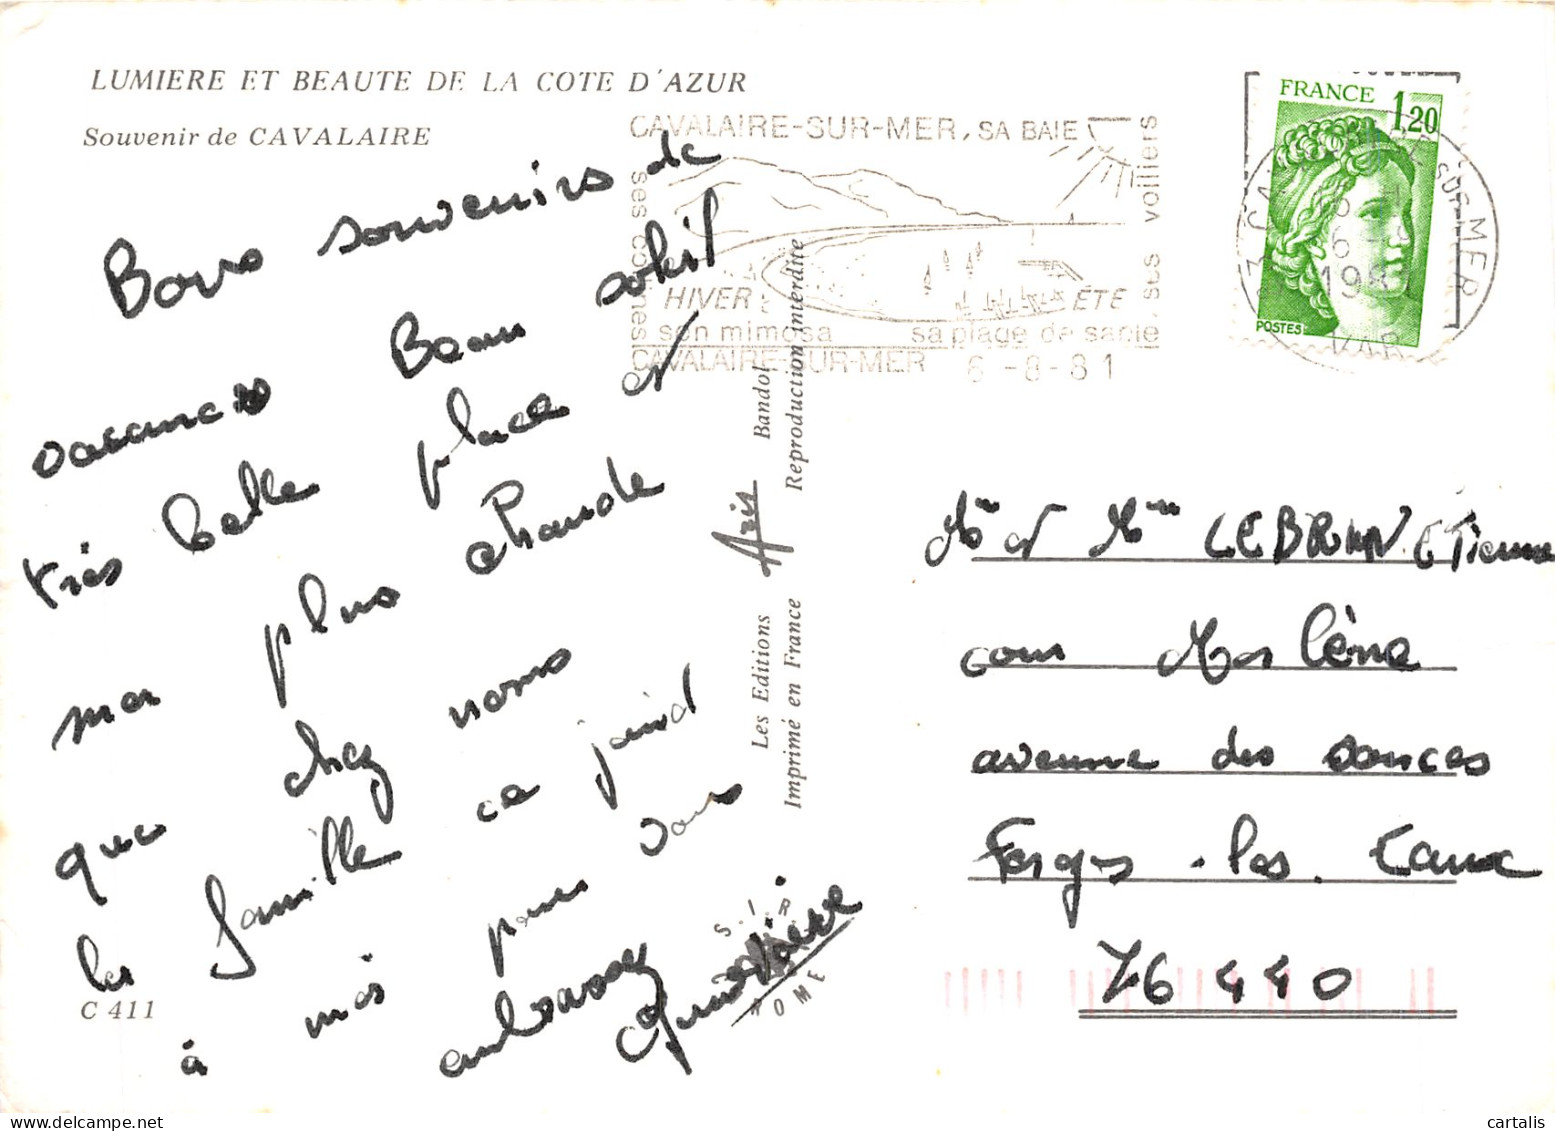 LUMIERE ET BEAUTE DE LA COTE D'AZUR
Souvenir de CAVALAIRE
Bons souvenirs de
vacances Beau soleil
très belle place et
mer plus chaude
que chez nous
la famille ce joind
à moi pour vous
embrasser
C 411
Les Editions Aris Bandol
Imprimé en France Reproduction interdite
S.I.R
ROME
CAVALAIRE-SUR-MER, SA BAIE
ses collines
ses voiliers
HIVER ETE
son mimosa sa plage de sable
CAVALAIRE-SUR-MER 6-8-81
FRANCE 1,20
POSTES
SUR-MER
VAR
Mr et Mme LEBRUN Etienne
cour Marlène
avenue des sources
Forges-les-Eaux
76440
cartalis